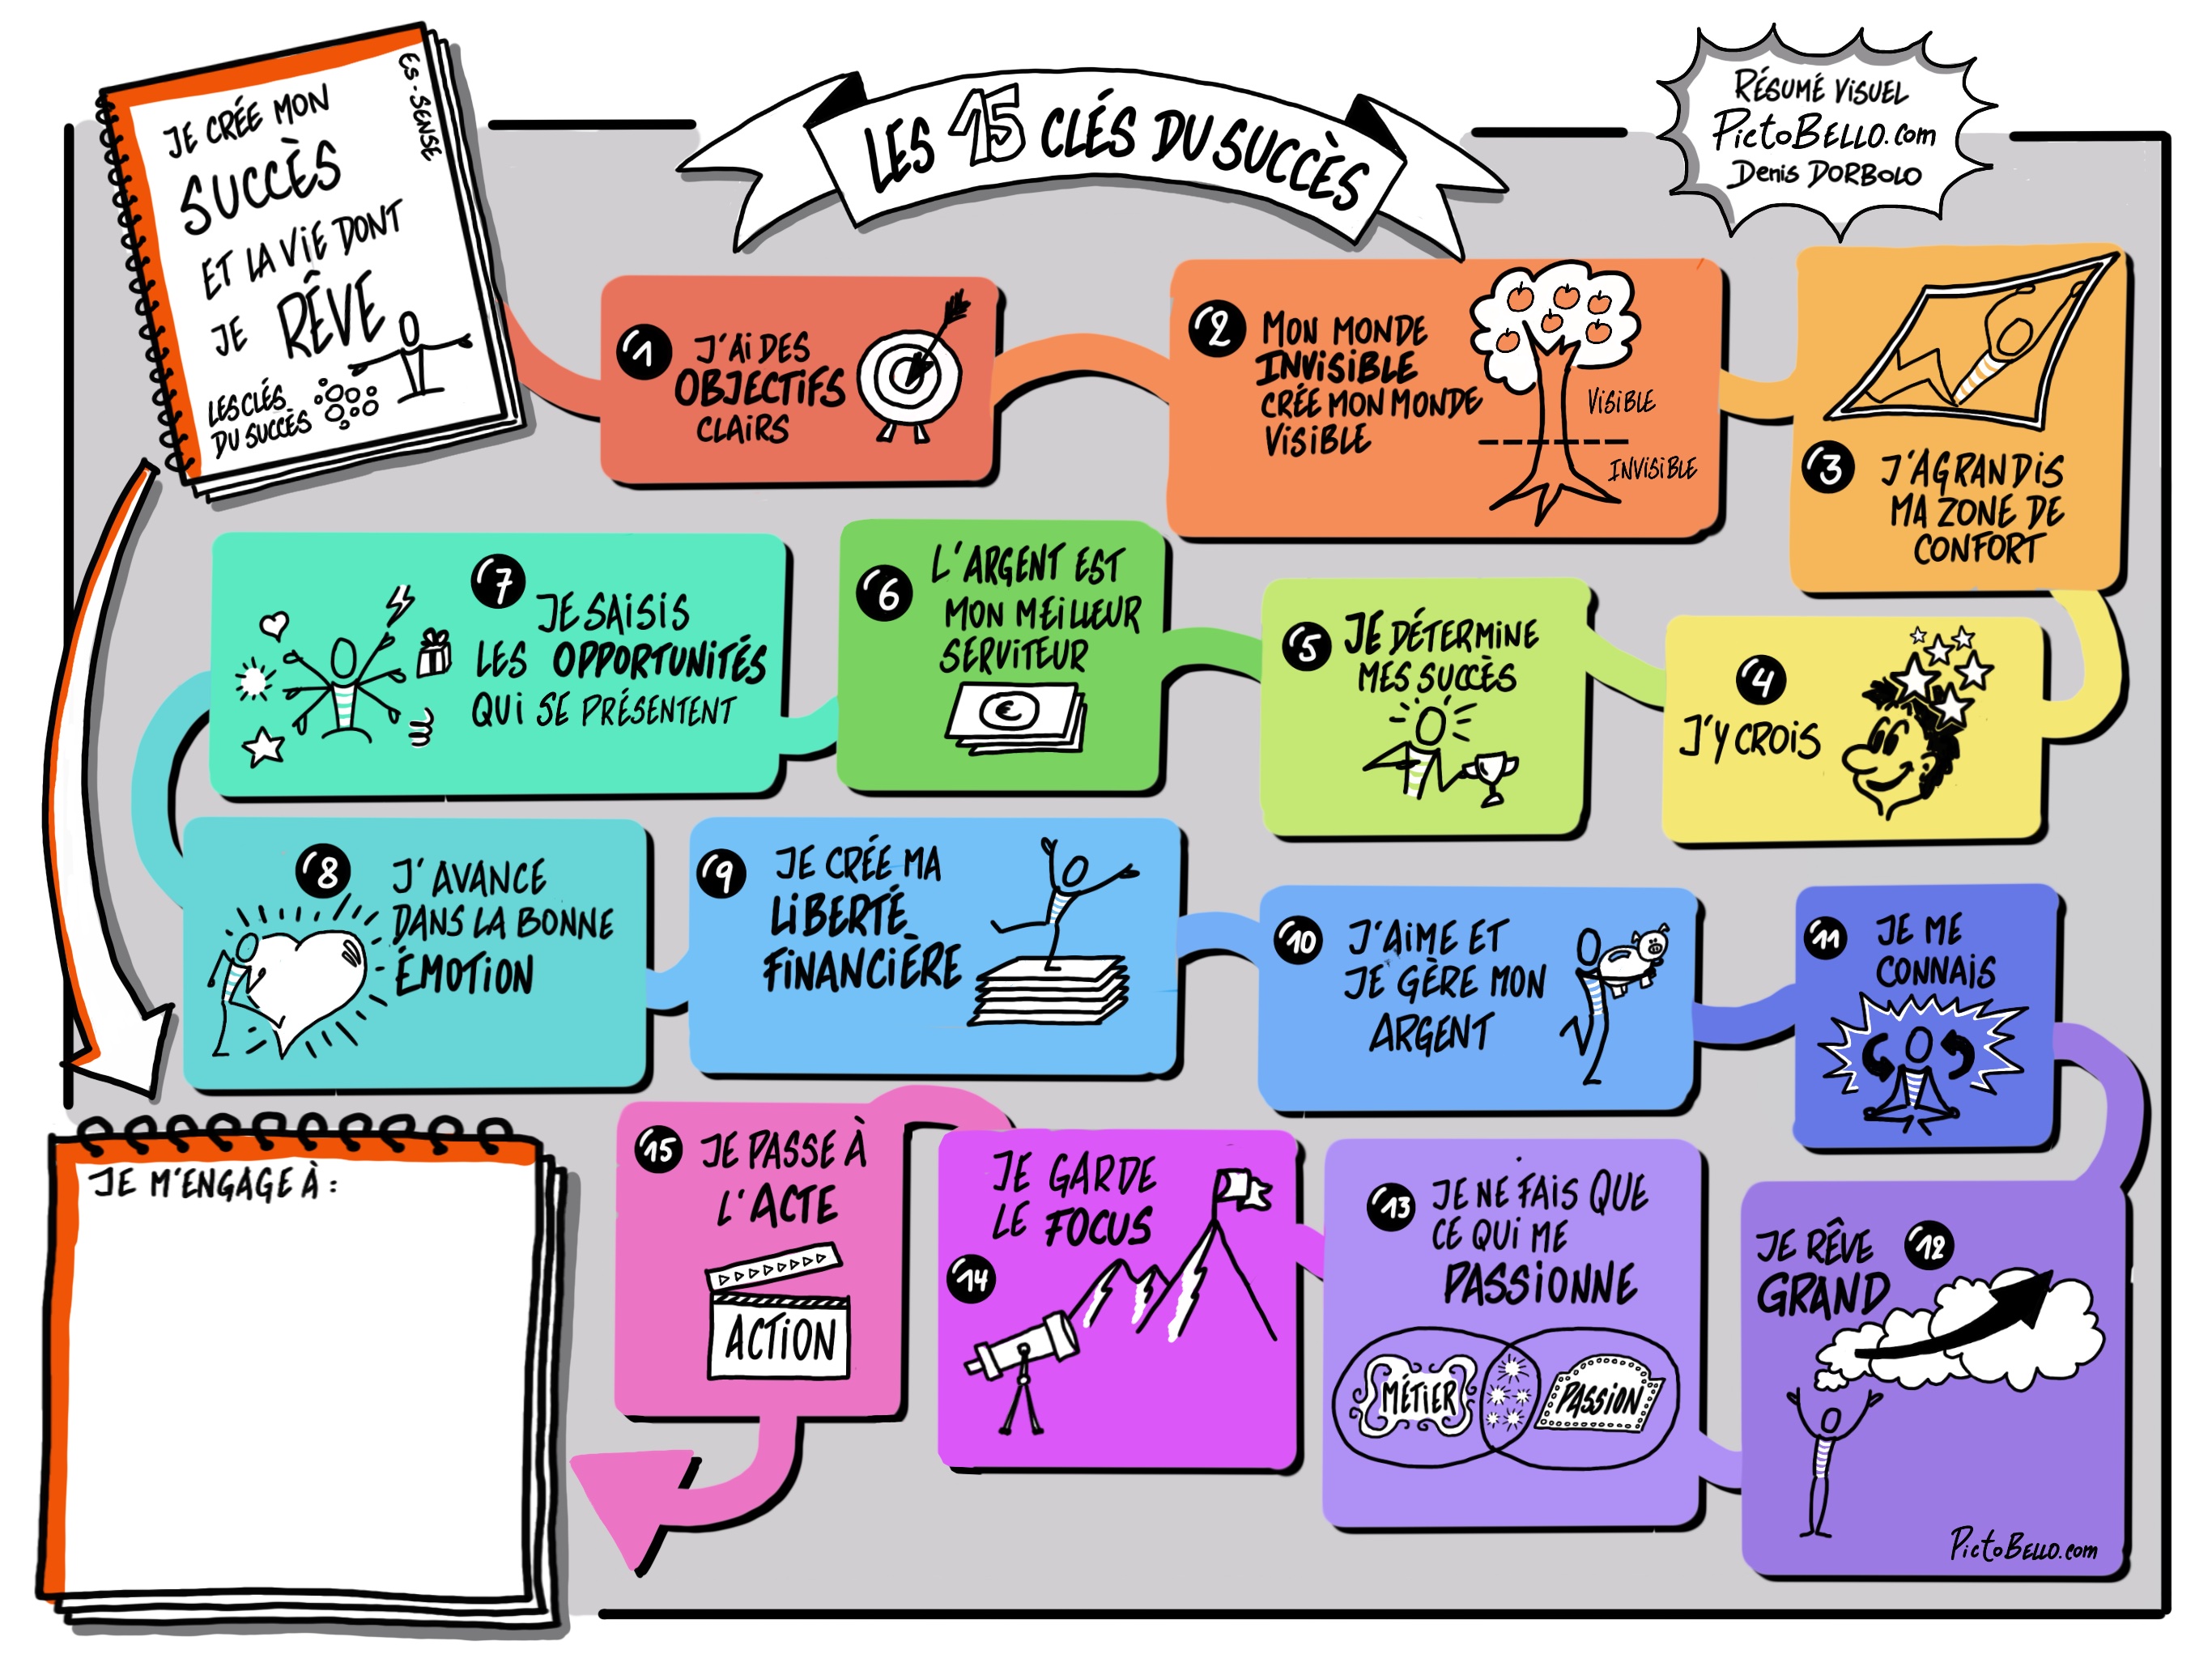 JE CRÉE MON
SUCCÈS
ET LA VIE DONT
JE RÊVE
LES CLÉS
DU SUCCÈS
ES-SENSE
LES 15 CLÉS DU SUCCÈS
RÉSUMÉ VISUEL
PictoBELLO.com
Denis DORBOLO
1
J'AI DES
OBJECTIFS
CLAIRS
2
MON MONDE
INVISIBLE
CRÉE MON MONDE
VISIBLE
VISIBLE
INVISIBLE
3
J'AGRANDIS
MA ZONE DE
CONFORT
4
J'Y CROIS
5
JE DÉTERMINE
MES SUCCÈS
6
L'ARGENT EST
MON MEILLEUR
SERVITEUR
€
7
JE SAISIS
LES OPPORTUNITÉS
QUI SE PRÉSENTENT
8
J'AVANCE
DANS LA BONNE
ÉMOTION
9
JE CRÉE MA
LIBERTÉ
FINANCIÈRE
10
J'AIME ET
JE GÈRE MON
ARGENT
11
JE ME
CONNAIS
12
JE RÊVE
GRAND
PictoBELLO.com
13
JE NE FAIS QUE
CE QUI ME
PASSIONNE
MÉTIER
PASSION
14
JE GARDE
LE FOCUS
15
JE PASSE À
L'ACTE
ACTION
JE M'ENGAGE À :